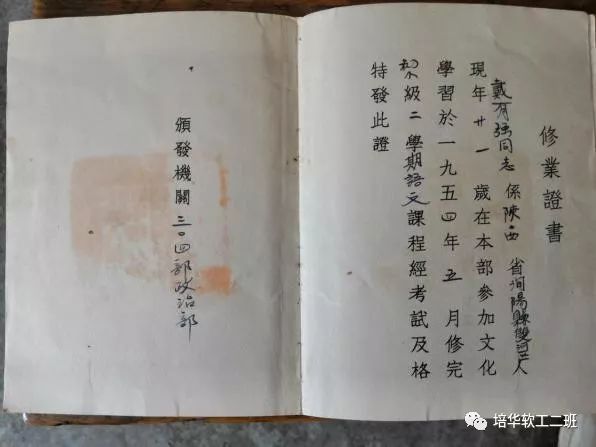 修業證書
戴有强同志係陝西省洵陽縣雙河區人
現年廿一歲在本部參加文化
學習於一九五四年五月修完
初級二學期語文課程經考試及格
特發此證
頒發機關三〇四部政治部
培华软工二班